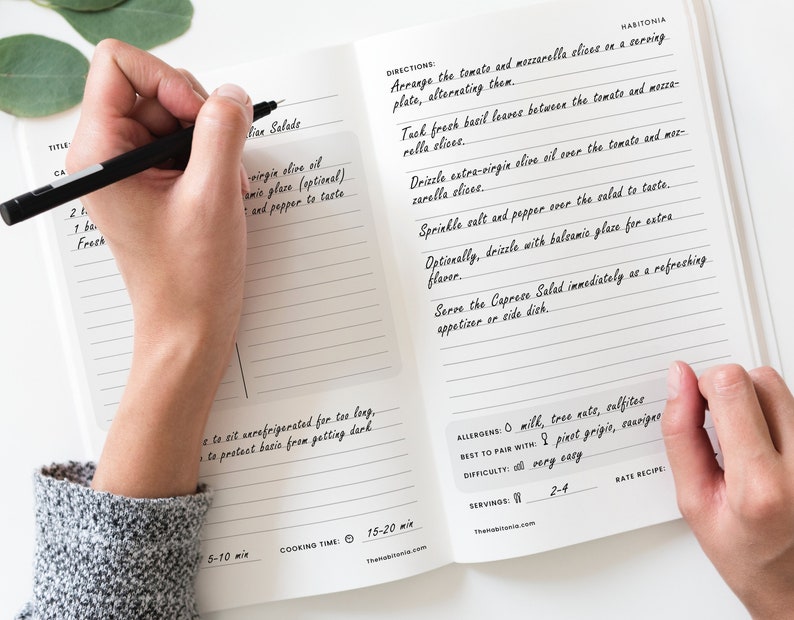 TITLE:
lian Salads
CA
-virgin olive oil
amic glaze (optional)
t and pepper to taste
2 t
1 ba
Fresh
s to sit unrefrigerated for too long,
to protect basic from getting dark
5-10 min
COOKING TIME: 15-20 min
TheHabitonia.com
HABITONIA
DIRECTIONS:
Arrange the tomato and mozzarella slices on a serving
plate, alternating them.
Tuck fresh basil leaves between the tomato and mozza-
rella slices.
Drizzle extra-virgin olive oil over the tomato and moz-
zarella slices.
Sprinkle salt and pepper over the salad to taste.
Optionally, drizzle with balsamic glaze for extra
flavor.
Serve the Caprese Salad immediately as a refreshing
appetizer or side dish.
ALLERGENS: milk, tree nuts, sulfites
BEST TO PAIR WITH: pinot grigio, sauvigno
DIFFICULTY: very easy
SERVINGS: 2-4
RATE RECIPE:
TheHabitonia.com